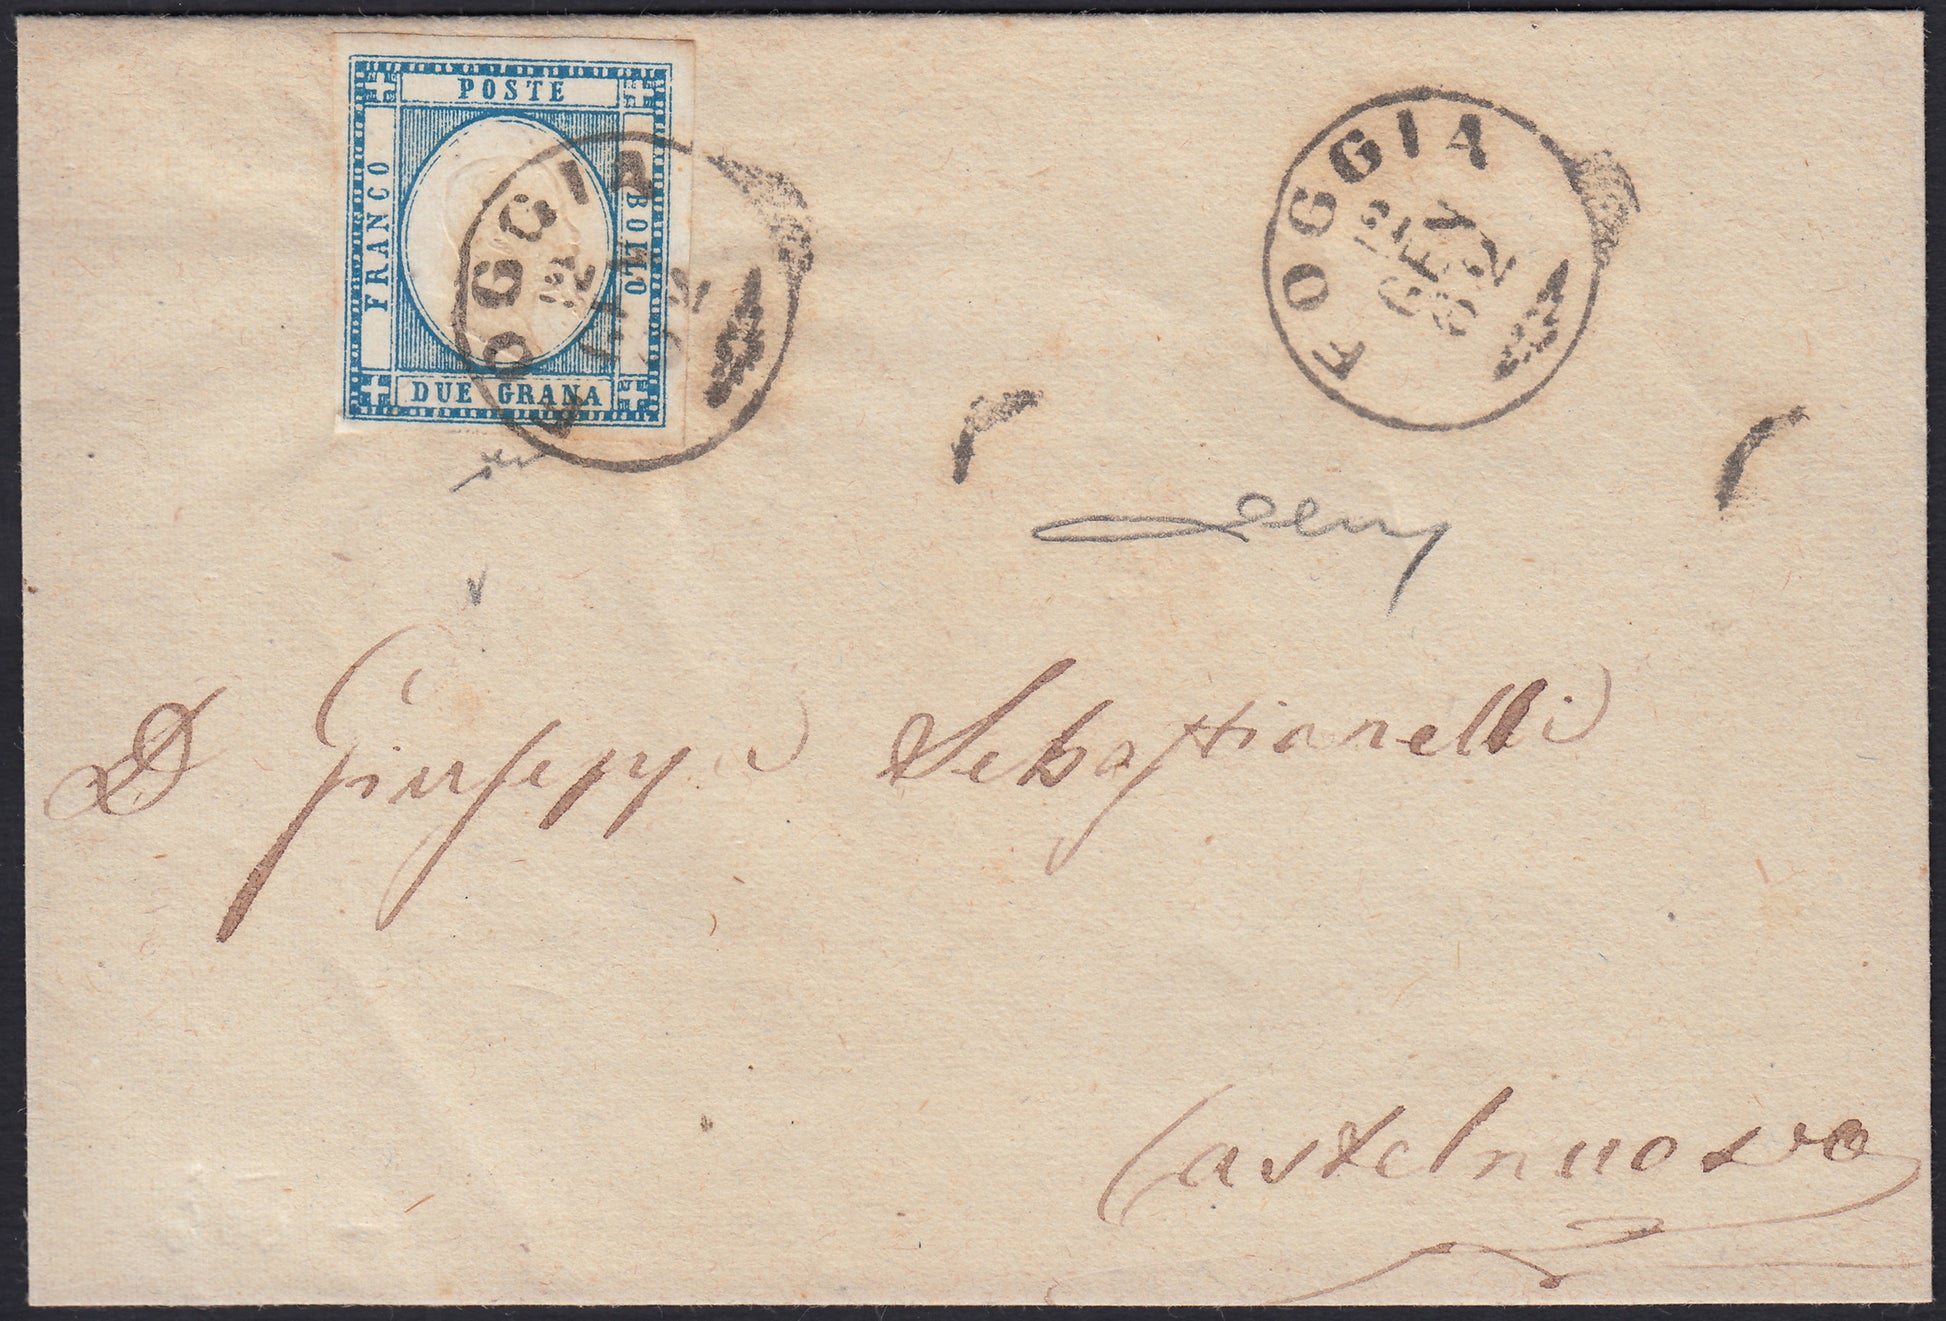 POSTE
FRANCO
BOLLO
DUE GRANA
FOGGIA
FOGGIA
GEN
62
D Giuseppe Sebastianelli
Castelnuovo